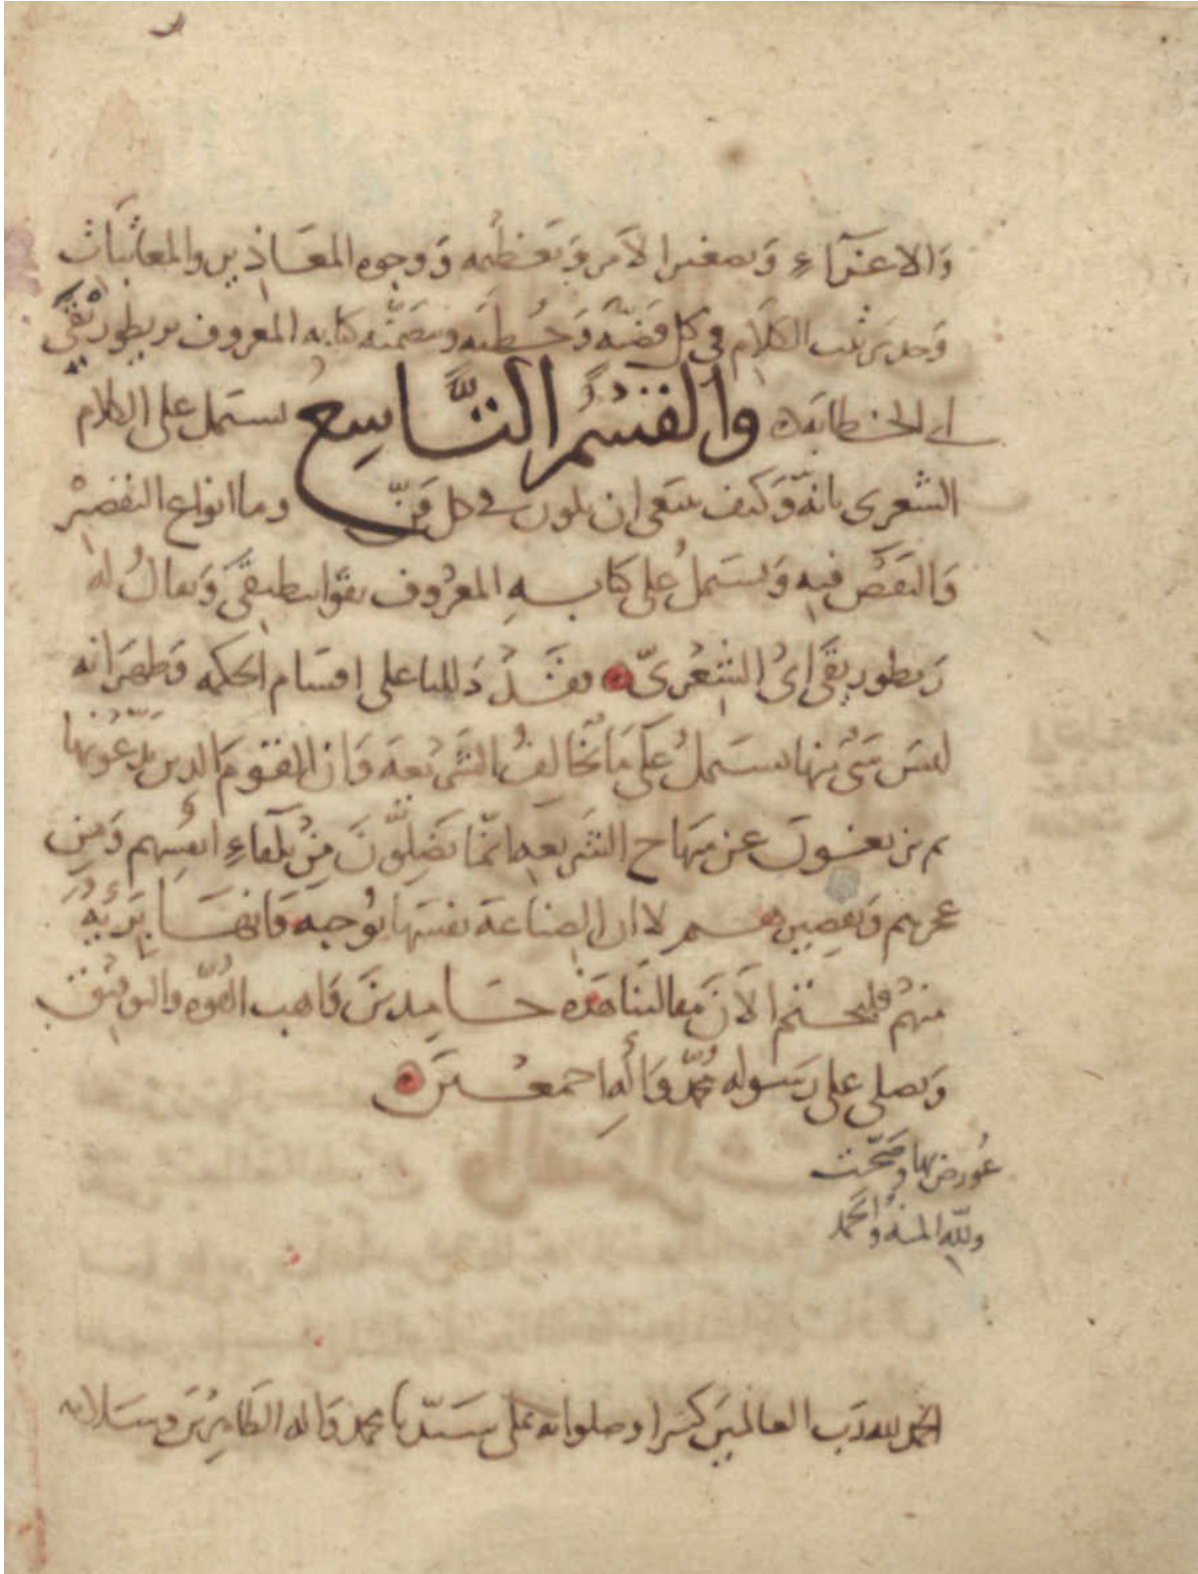 والاغراء وتصغير الامر وتعظيمه ووجوه المعاذير والمعاتبات
وحد ترتيب الكلام في كل قصّة وخطبة ويتضمّنه كتابه المعروف بريطوريقي
اي الخطابة والقِسْمُ التَّاسِع يشتمل على الكلام
الشعرى بانّه وكيف ينبغى ان يكون فى كل فنّ وما انواع التقصير
والنقص فيه ويشتمل على كتابه المعروف بقوانيطيقى ويقال له
ريطوريقى اى الشعرىّ فقد دللنا على اقسام الحكمه وظهر انه
ليس شىء منها يشتمل على ما يخالف الشريعة فان القوم الذين يدّعونها
ثم يزيغون عن منهاج الشريعه انما يضلّون من تلقاء انفسهم ومن
عجزهم وتقصيرهم لا ان الصناعة نفسها توجبه فانها بريّة
منهم فلنختم الآن مقالتنا هذه حامدين واهب القوّه والتوفيق
ونصلى على رسوله محمّد وآله اجمعين
عورض بها وصحّت
ولله المنه والحمد
الحمد لله رب العالمين كثيرا وصلواته على سيّدنا محمد واله الطاهرين وسلامه